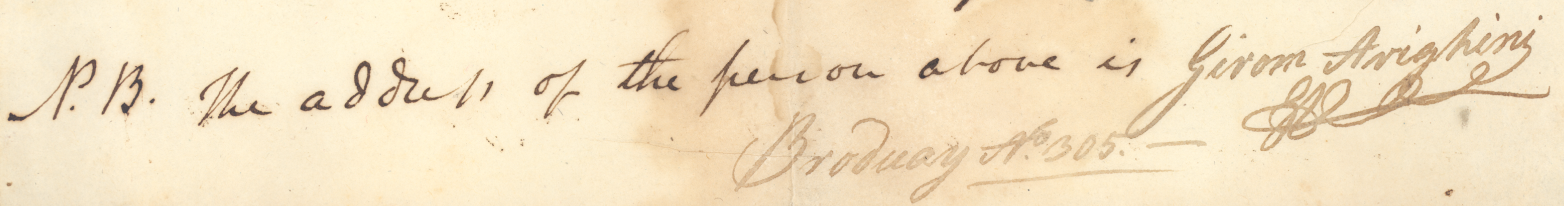 N.B. The address of the person above is Girom Arighini
Broduay No. 305. —